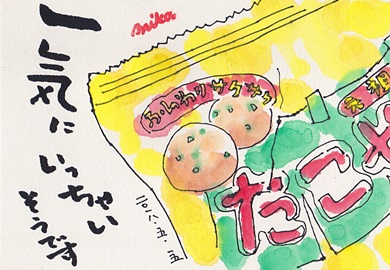 一気に
いっちゃい
そうです
mika
ふんわりサクサクッ
元祖
たこや
二〇一八.五.一五